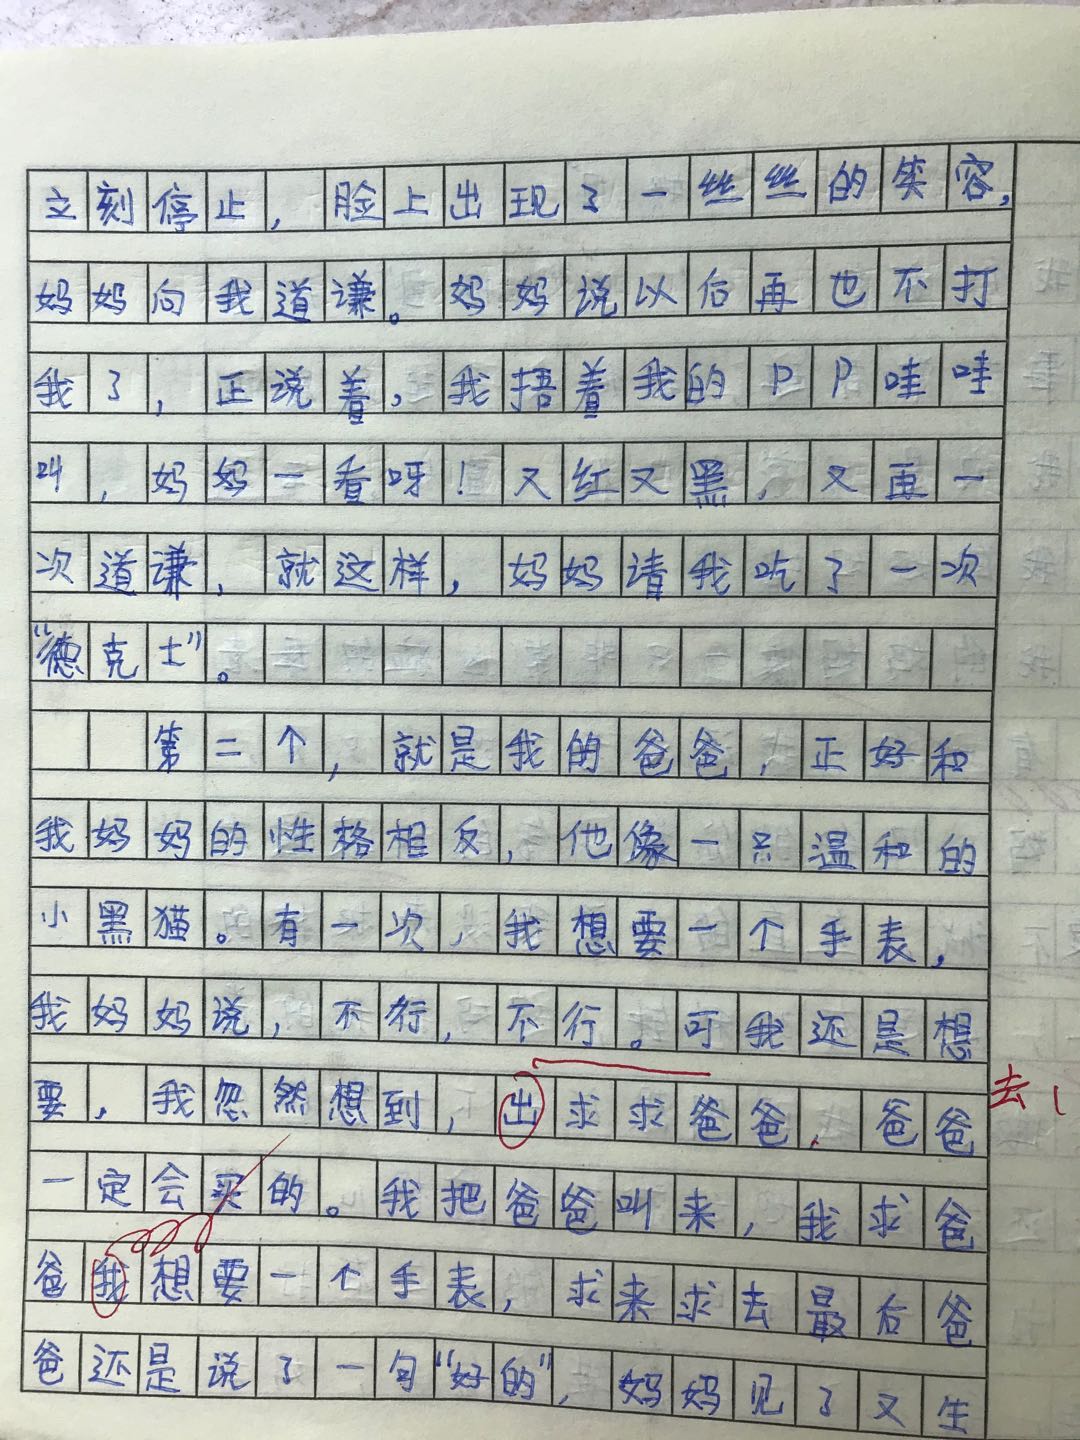 立刻停止，脸上出现了一丝丝的笑容，
妈妈向我道谦。妈妈说以后再也不打
我了，正说着，我捂着我的PP哇哇
叫，妈妈一看呀！又红又黑，又再一
次道谦，就这样，妈妈请我吃了一次
“德克士”。
第二个，就是我的爸爸，正好和
我妈妈的性格相反，他像一只温和的
小黑猫。有一次，我想要一个手表，
我妈妈说，不行，不行。可我还是想
要，我忽然想到，出求求爸爸，爸爸
去
一定会买的。我把爸爸叫来，我求爸
爸我想要一个手表，求来求去最后爸
爸还是说了一句“好的”，妈妈见了又生